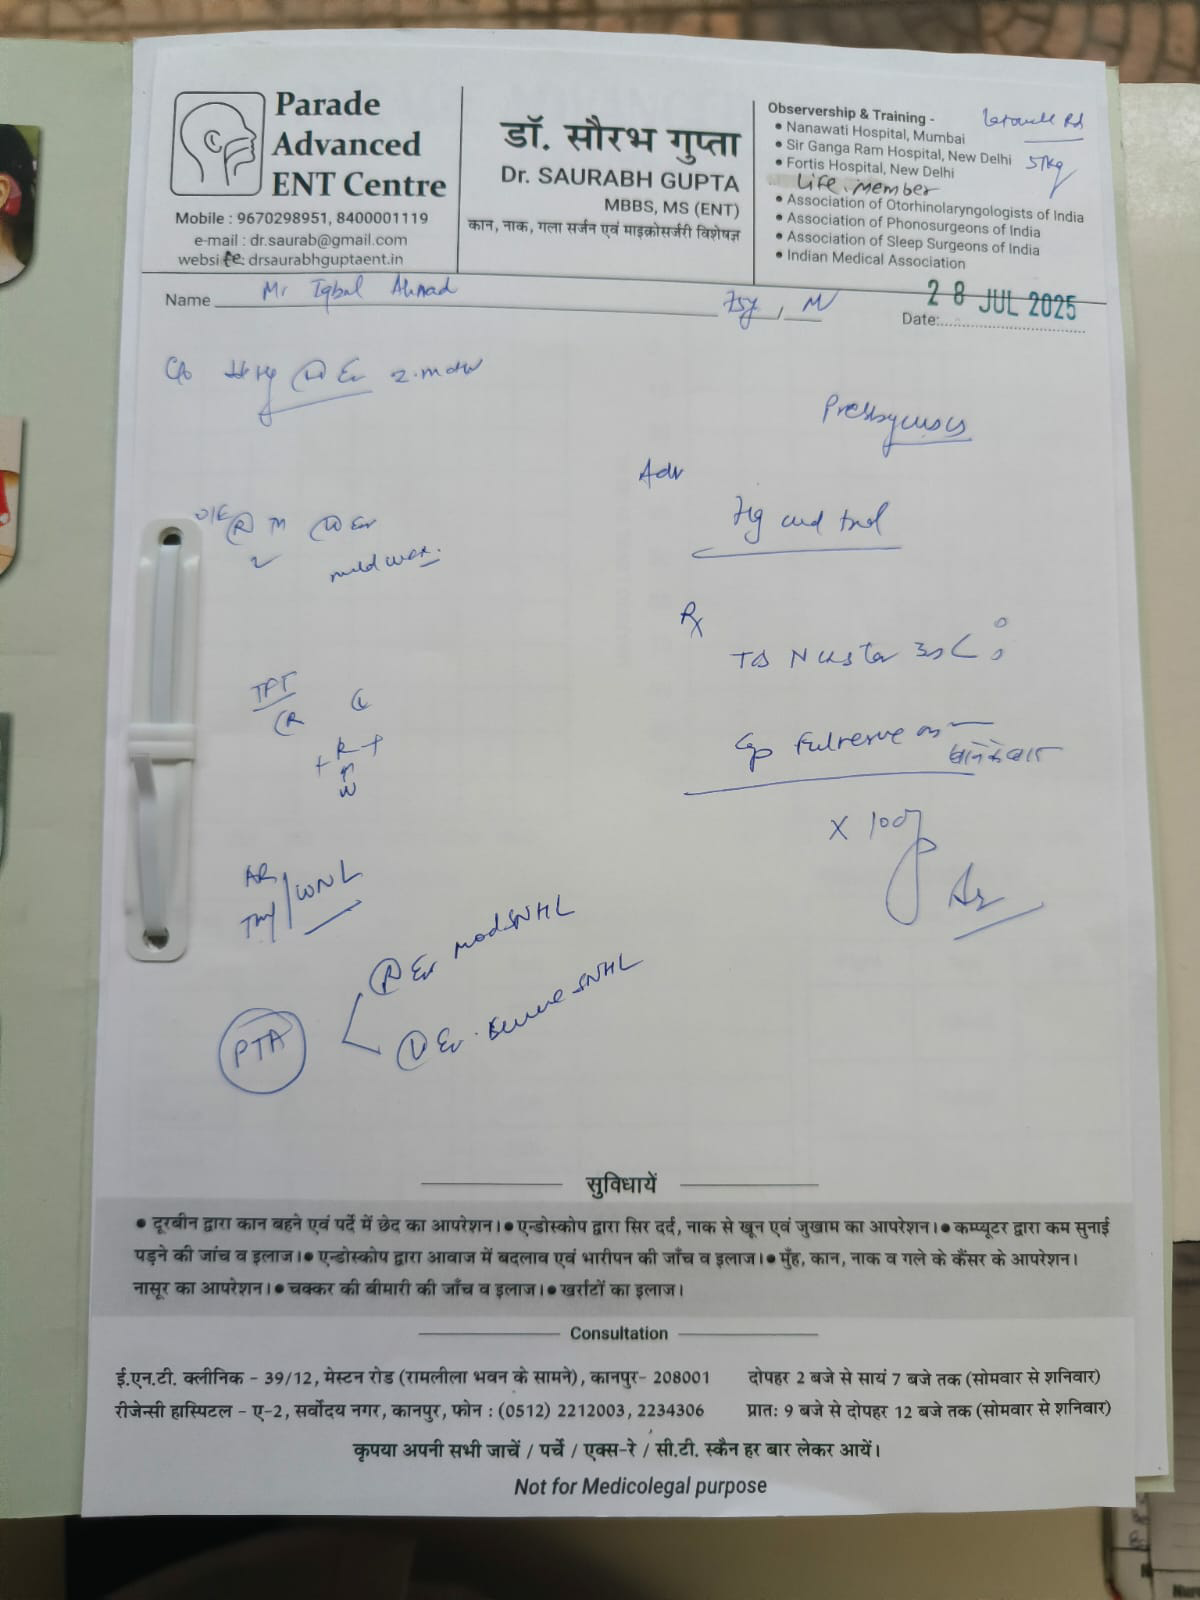 Parade
Advanced
ENT Centre
Mobile : 9670298951, 8400001119
e-mail : dr.saurab@gmail.com
website: drsaurabhguptaent.in
डॉ. सौरभ गुप्ता
Dr. SAURABH GUPTA
MBBS, MS (ENT)
कान, नाक, गला सर्जन एवं माइक्रोसर्जरी विशेषज्ञ
Observership & Training -
• Nanawati Hospital, Mumbai
• Sir Ganga Ram Hospital, New Delhi
• Fortis Hospital, New Delhi
Life member
• Association of Otorhinolaryngologists of India
• Association of Phonosurgeons of India
• Association of Sleep Surgeons of India
• Indian Medical Association
57kg
Name Mr Iqbal Ahmad 75y, M
28 JUL 2025
Date:
C/o (L) Ear
Presbycusis
Adv
O/E (R) (L) Ear
mild wax.
Rx
(R) (L)
+ R +
W
Cap
X 10
WNL
PTA
(R) Ear mod SNHL
(L) Ear severe SNHL
सुविधायें
• दूरबीन द्वारा कान बहने एवं पर्दे में छेद का आपरेशन।• एन्डोस्कोप द्वारा सिर दर्द, नाक से खून एवं जुखाम का आपरेशन।• कम्प्यूटर द्वारा कम सुनाई
पड़ने की जांच व इलाज।• एन्डोस्कोप द्वारा आवाज में बदलाव एवं भारीपन की जाँच व इलाज।• मुँह, कान, नाक व गले के कैंसर के आपरेशन।
नासूर का आपरेशन।• चक्कर की बीमारी की जाँच व इलाज।• खर्राटों का इलाज।
Consultation
ई.एन.टी. क्लीनिक - 39/12, मेस्टन रोड (रामलीला भवन के सामने), कानपुर- 208001 दोपहर 2 बजे से सायं 7 बजे तक (सोमवार से शनिवार)
रीजेन्सी हास्पिटल - ए-2, सर्वोदय नगर, कानपुर, फोन : (0512) 2212003, 2234306 प्रातः 9 बजे से दोपहर 12 बजे तक (सोमवार से शनिवार)
कृपया अपनी सभी जाचें / पर्चे / एक्स-रे / सी.टी. स्कैन हर बार लेकर आयें।
Not for Medicolegal purpose